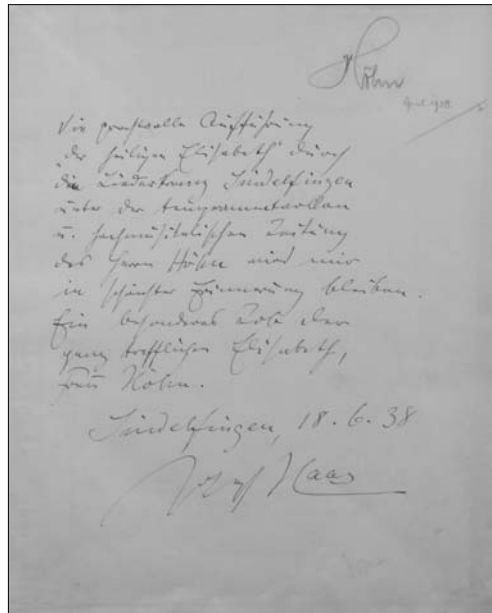 Höhn
Die prachtvolle Aufführung
"der heiligen Elisabeth" durch
den Liederkranz Sindelfingen
unter der temperamentvollen
u. hochmusikalischen Leitung
des Herrn Höhn wird mir
in schönster Erinnerung bleiben.
Ein besonderes Lob der
ganz trefflichen Elisabeth,
Frau Höhn.
Sindelfingen, 18.6.38
Joseph Haas